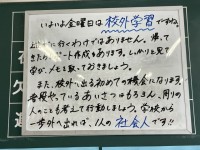 いよいよ金曜日は校外学習ですね。
に行くわけではありません。帰って
きたら ート作成もあります。しっかりと見て
学び、メモを取っておきましょう。
また、校外に出る初めての機会になります。
普段やっているあいさつはもちろん、周りの
人のことも考えて行動しましょう。学校から
一歩外へ出れば、1人の社会人です!!
欠